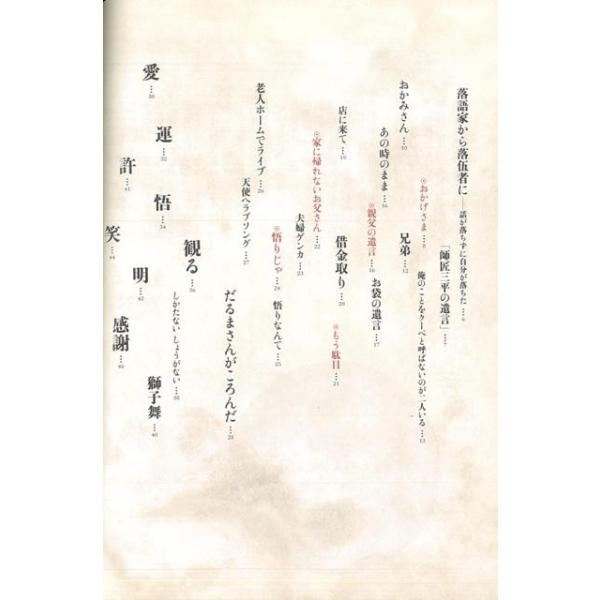 落語家から落伍者に――話が落ちずに自分が落ちた…6
「師匠三平の遺言」……
おかげさま…8
俺のことをクーペと呼ばないのが二人いる…13
おかみさん…10
兄弟…12
あの時のまま…14
親父の遺言…16
お袋の遺言…17
店に来て…19
借金取り…20
もう駄目…21
家に帰れないお父さん…22
夫婦ゲンカ…23
悟りじゃ…24
悟りなんて…25
老人ホームでライブ…26
天使へラブソング…27
だるまさんがころんだ…28
愛…30
運…32
悟…34
観る…36
しかたない しょうがない…38
獅子舞…40
許…41
明…42
笑…44
感謝…46